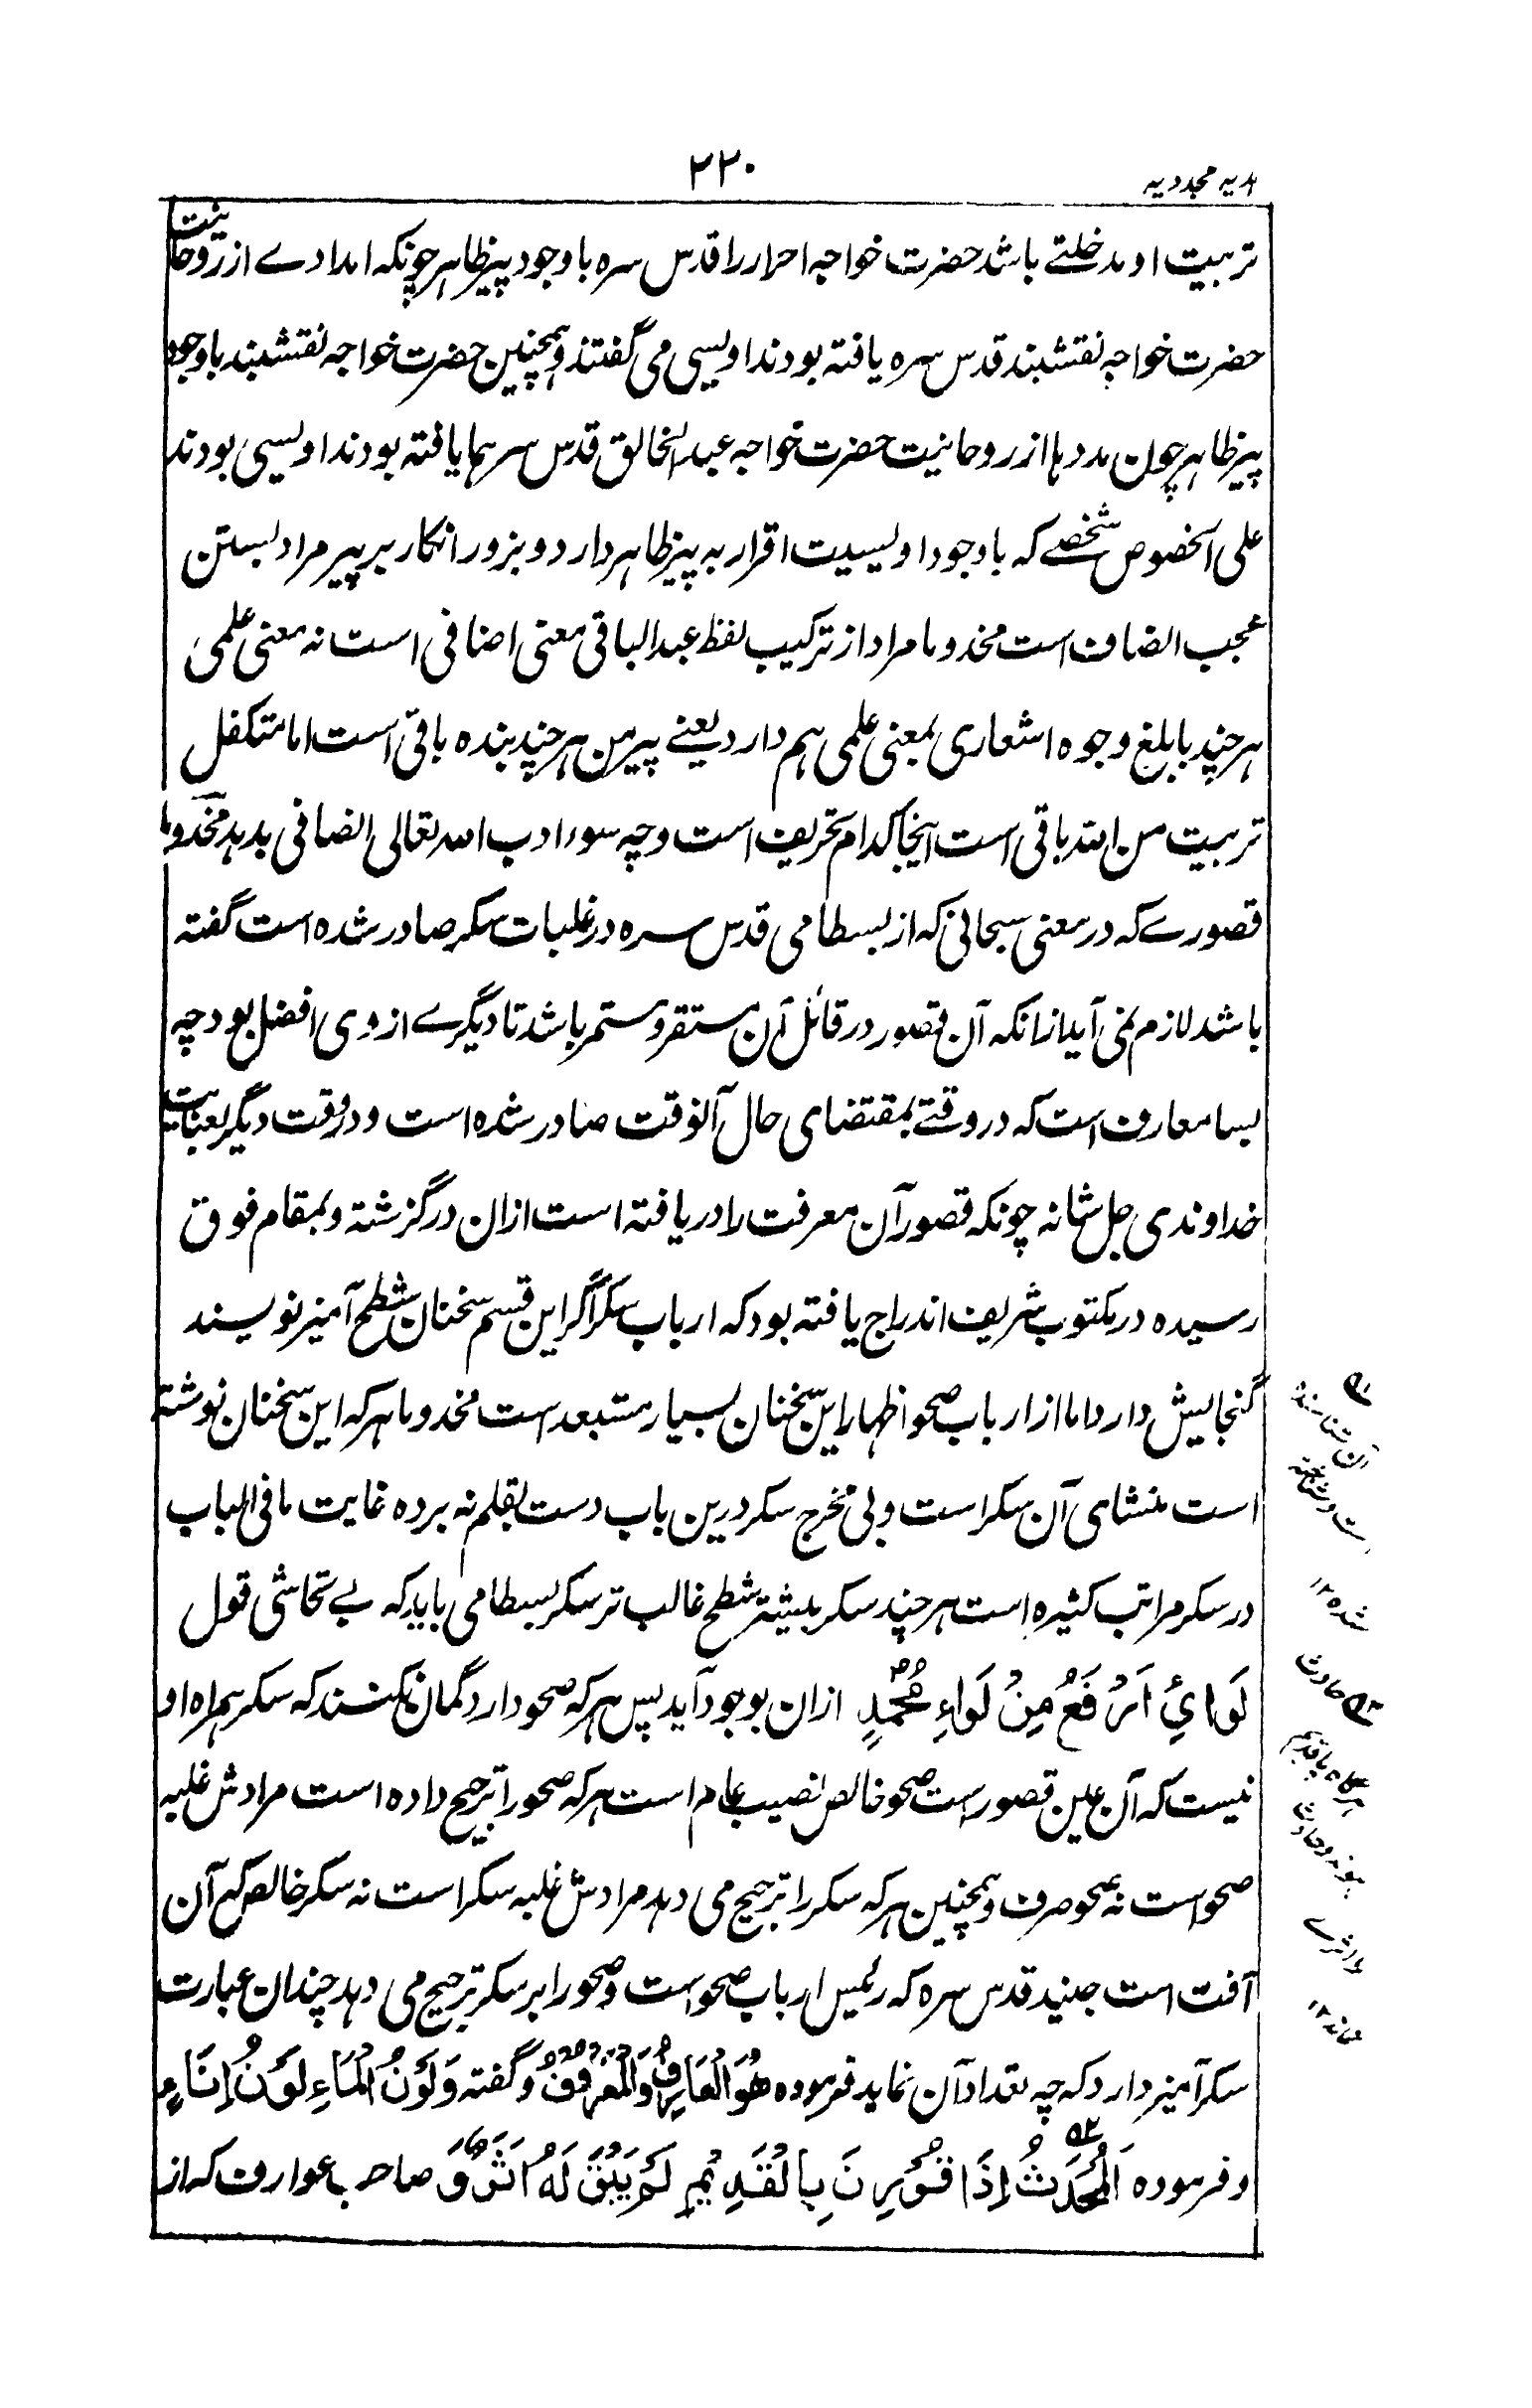 هدیه مجددیه
۲۲۰
تربیت او مدخلتے باشد حضرت خواجه احرار را قدس سره باوجود پیر ظاهر چونکه امدادے از روحانیت
حضرت خواجه نقشبند قدس سره یافته بودند اویسی می گفتند و همچنین حضرت خواجه نقشبند باوجود
پیر ظاهر چون مددها از روحانیت حضرت خواجه عبدالخالق قدس سرهما یافته بودند اویسی بودند
علی الخصوص شخصے که باوجود اویسیت اقرار به پیر ظاهر دارد و بزور انکار بر پیر مراد بستن
عجب انصاف است مخدوما مراد از ترکیب لفظ عبدالباقی معنی اضافی است نه معنی علمی
هرچند بابلغ وجوه اشعاری بمعنی علمی هم دارد یعنے پیر من هرچند بنده باقی است اما متکفل
تربیت من الله باقی است اینجا کدام تحریف است و چه سوء ادب الله تعالی انصافی بدهد مخدوما
قصورے که در معنی سبحانی که از بسطامی قدس سره در غلبات سکر صادر شده است گفته
باشد لازم نمی آید ازانکه آن قصور در قائل آن مستقر و مستمر باشد تا دیگرے از وی افضل بود چه
بسا معارف است که در وقتے بمقتضای حال آنوقت صادر شده است و در وقت دیگر بعنایت
خداوندی جل شانه چونکه قصور آن معرفت را دریافته است ازان درگزشته و بمقام فوق
رسیده در مکتوب شریف اندراج یافته بود که ارباب سکر اگر این قسم سخنان شطح آمیز نویسند
گنجایش دارد اما از ارباب صحو اظهار این سخنان بسیار مستبعد است مخدوما هرکه این سخنان نوشته
است منشای آن سکر است و بی مخرج سکر درین باب دست بقلم نه برده غایت ما فی الباب
در سکر مراتب کثیره است هرچند سکر بیشتر شطح غالب تر سکر بسطامی باید که بے تحاشی قول
لَوَائِي اَرْفَعُ مِنْ لَوَاءِ مُحَمَّدٍ ازان بوجود آید پس هرکه صحو دارد گمان نکنند که سکر همراه او
نیست که آن عین قصور است صحو خالص نصیب عام است هرکه صحو را ترجیح داده است مرادش غلبه
صحو است نه صحو صرف و همچنین هرکه سکر را ترجیح می دهد مرادش غلبه سکر است نه سکر خالص که آن
آفت است جنید قدس سره که رئیس ارباب صحو است و صحو را بر سکر ترجیح می دهد چندان عبارت
سکر آمیز دارد که چه تعداد آن نماید فرموده هُوَ الْعَارِفُ وَالْمَعْرُوْفُ و گفته وَلَوْنُ الْمَاءِ لَوْنُ اِنَاءِ
و فرموده اَلْمُحْدَثُ اِذَا قُوْرِنَ بِالْقَدِيْمِ لَمْ يَبْقَ لَهُ اَثَرٌ وَ صاحب عوارف که از
آن شناسنده
است و شناخته
شده ۱۲
حادث
هرگاه با قدیم
بوند و حادث
را اثرے
نماند ۱۲